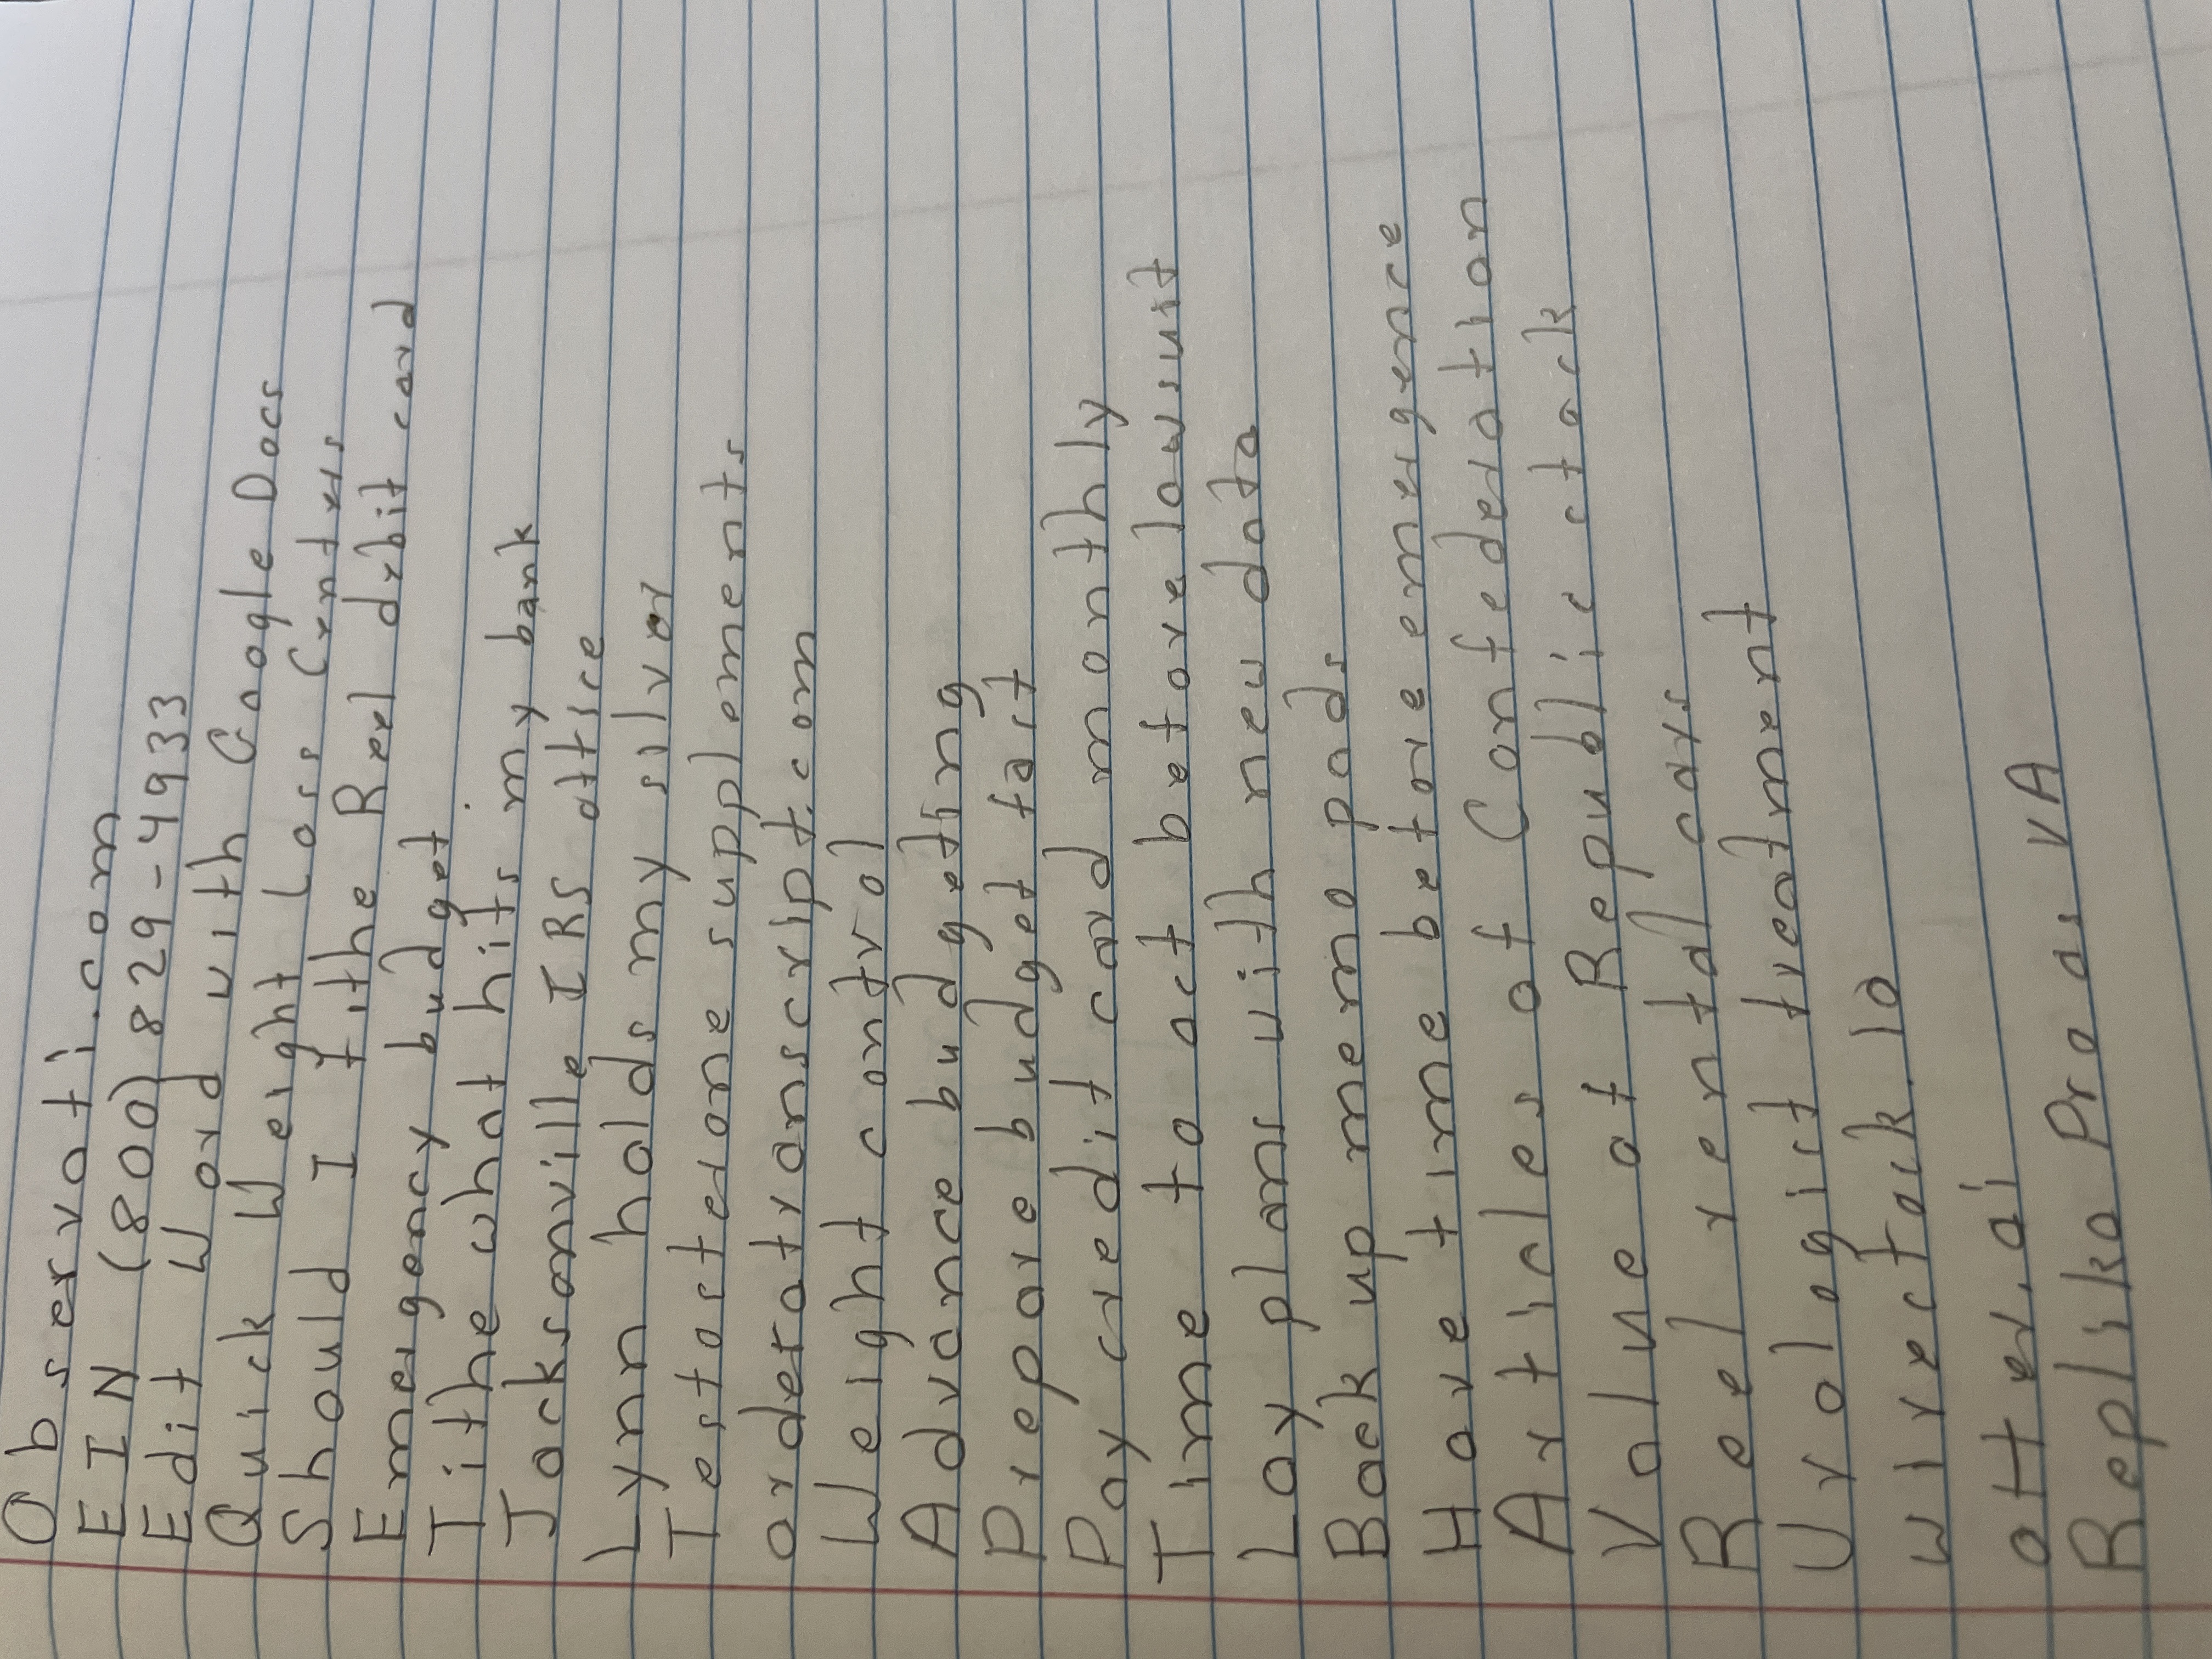 Observati.com
EIN (800) 829-4933
Edit Word with Google Docs
Quick Weight Loss Centers
Should I tithe Rel debit card
Emergency budget
Tithe what hits my bank
Jacksonville IRS office
Lynn holds my silver
Testosterone supplements
orderatranscript.com
Weight control
Advance budgeting
Prepare budget fast
Pay credit card monthly
Time to act before lawsuit
Lay plans with new data
Back up memo pads
Have time before emergence
Articles of Confederation
Value of Republic stock
Rel rental cars
Urologist treatment
wirestock.io
otter.ai
Replika Pro as VA